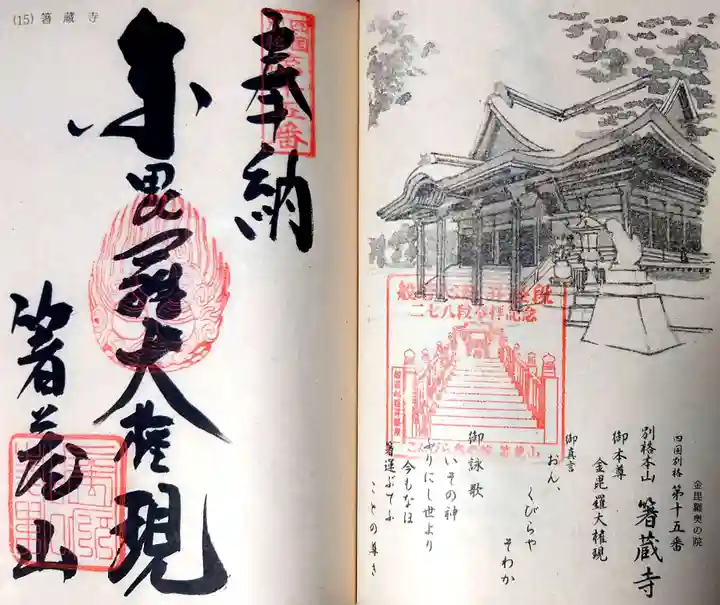 (15) 箸蔵寺
奉納
金毘羅大権現
箸蔵山
金毘羅奥の院
四国別格 第十五番
別格本山 箸蔵寺
御本尊
金毘羅大権現
御真言
おん、
くびらや
そわか
御詠歌
いその神
ふりにし世より
今もなほ
箸運ぶてふ
ことの尊き
二七八段参拝記念